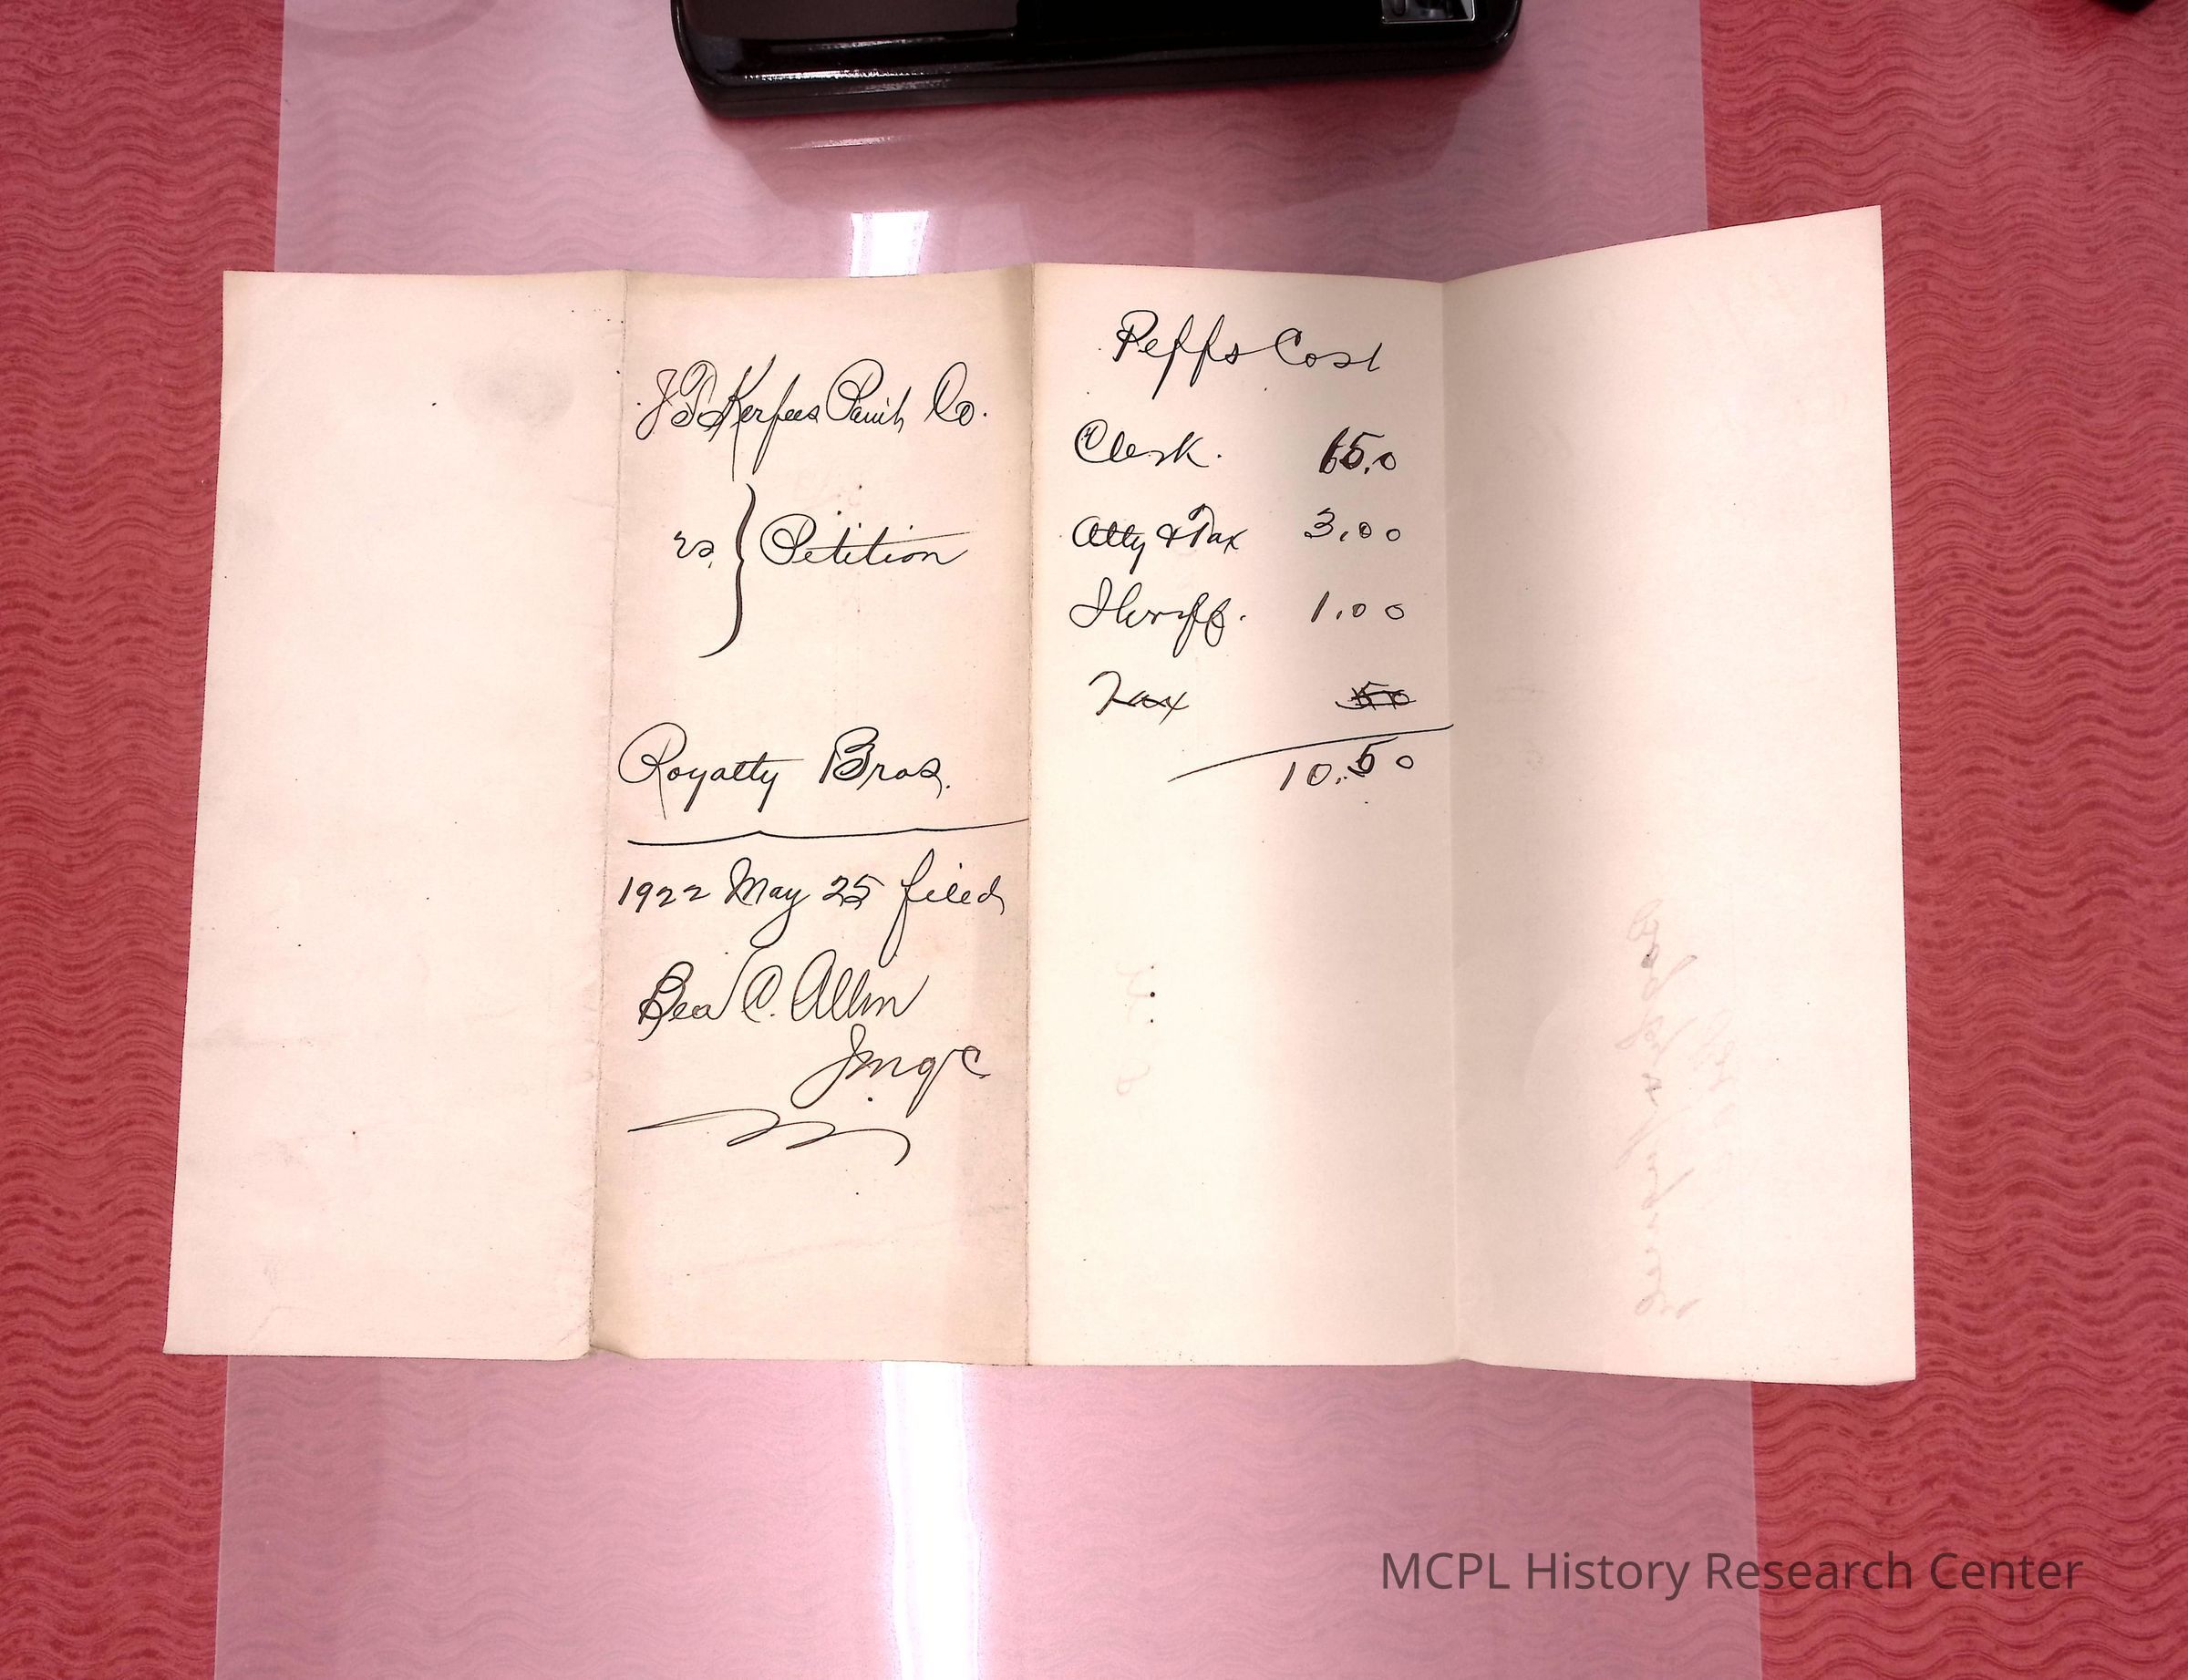 J D Kerfees Paint Co.
vs. } Petition
Royalty Bros.
1922 May 25 filed
Geo C. Allen
Peffs Cost
Clerk. 65.0
Atty & Tax 3.00
Sheriff. 1.00
Tax 50
10.50
MCPL History Research Center